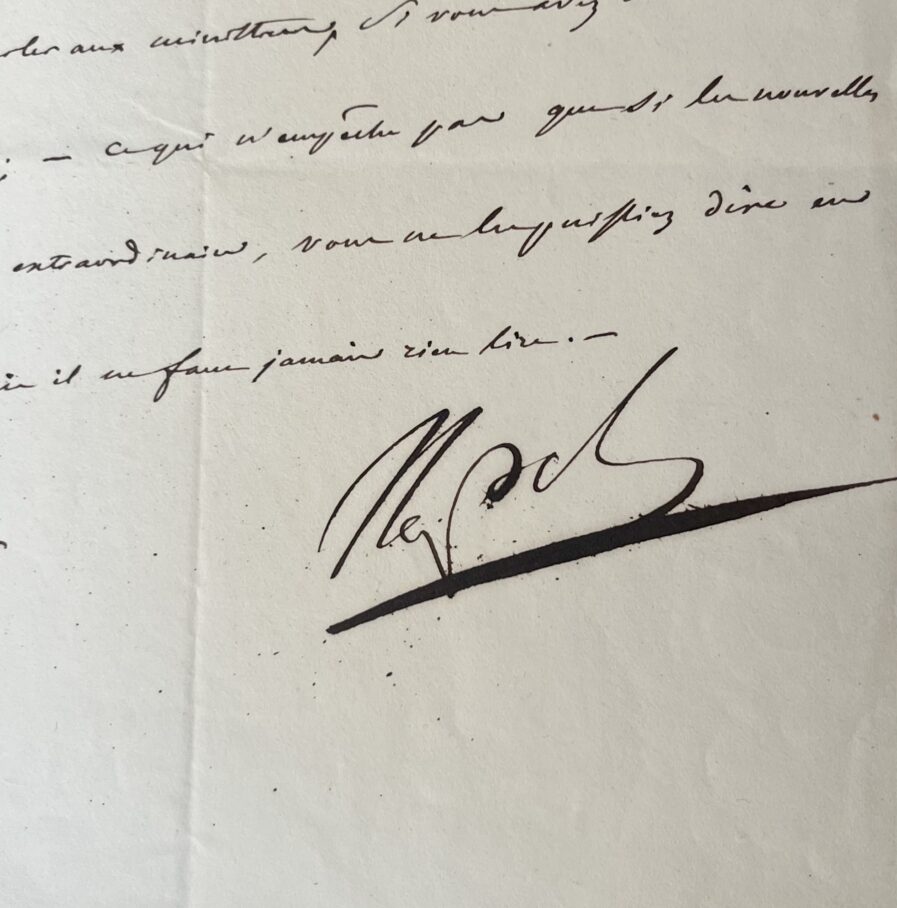 aux ministres, si vous avez
; — ce qui n'empêche pas que si les nouvelles
extraordinaires, vous ne les puissiez dire en
il ne faut jamais rien lire. —